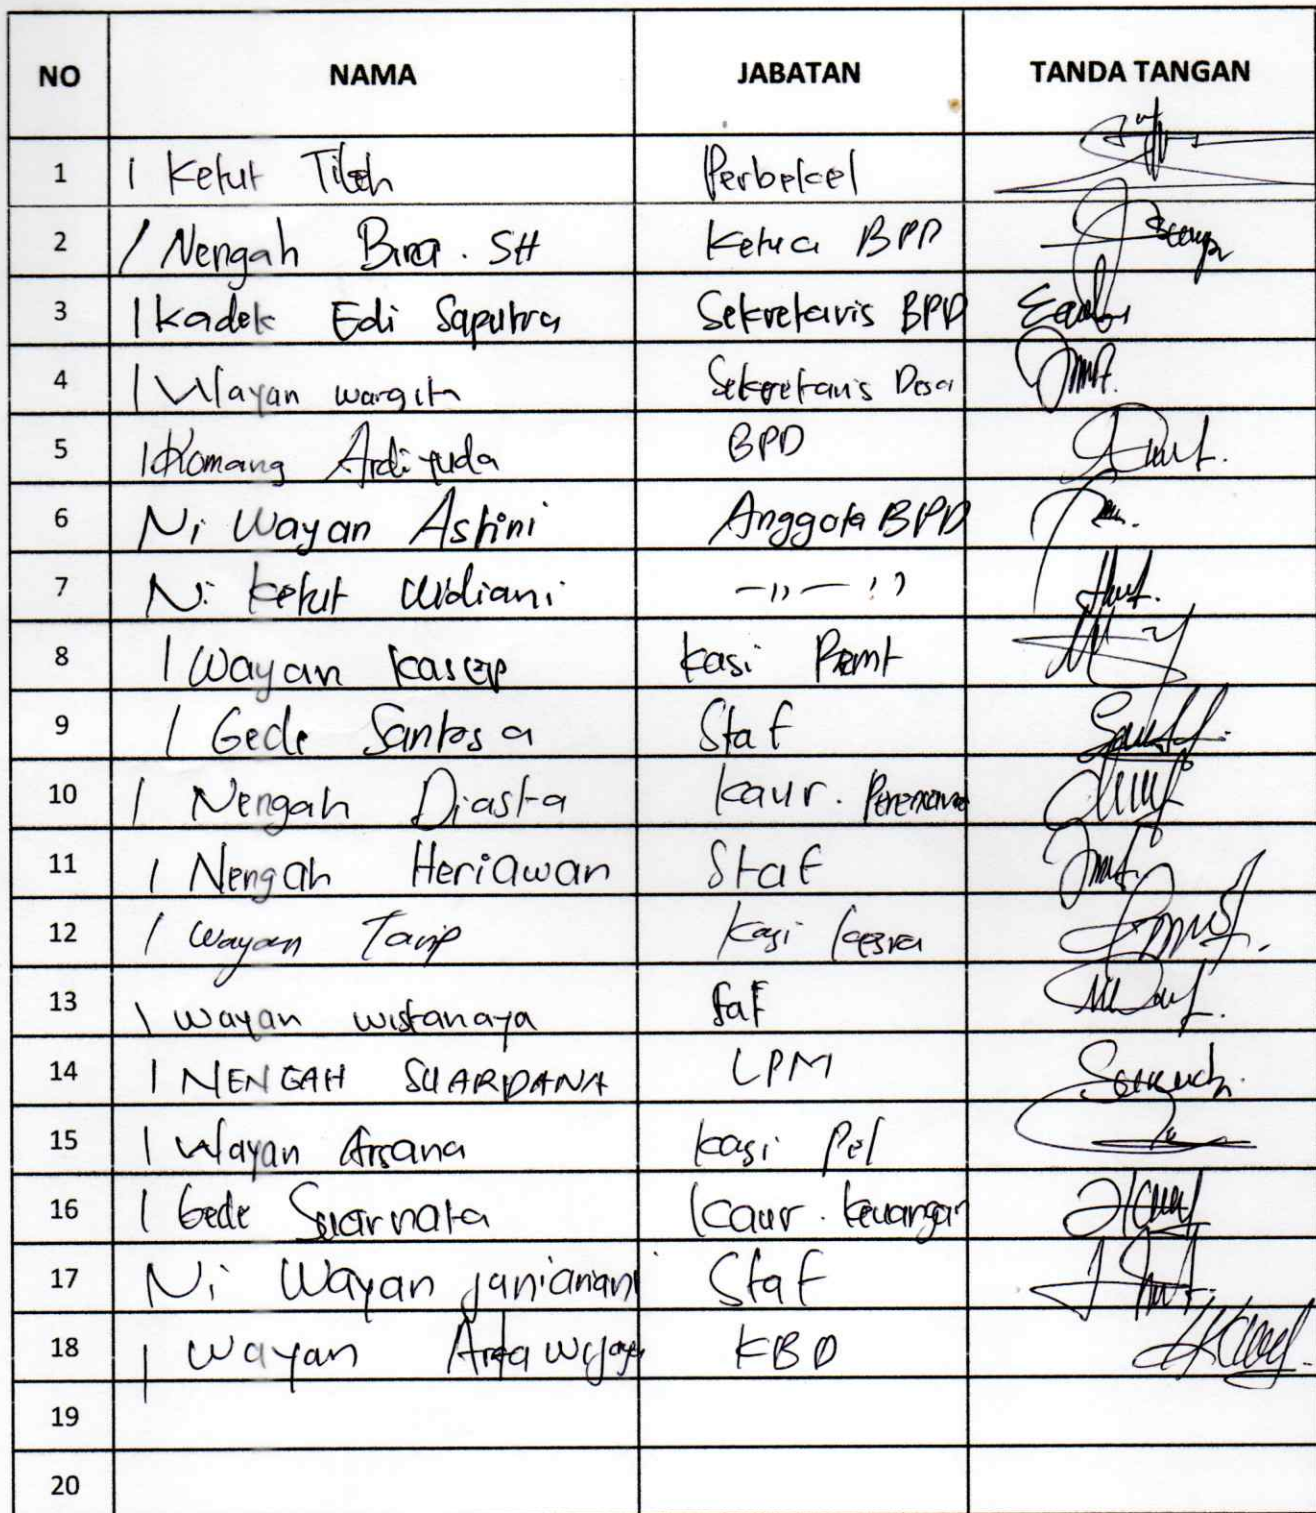 NO NAMA JABATAN TANDA TANGAN
1 I Ketut Tileh Perbekel
2 I Nengah Bira. SH Ketua BPD
3 I Kadek Edi Saputra Sekretaris BPD
4 I Wayan wargita Sekretaris Desa
5 I Komang Ardi yuda BPD
6 Ni Wayan Astini Anggota BPD
7 Ni Ketut Widiani -,,- ,,
8 I Wayan Kasep Kasi Pemt
9 I Gede Santosa Staf
10 I Nengah Diasta Kaur.
11 I Nengah Heriawan Staf
12 I Wayan Tarip Kasi Kesra
13 I wayan wistanaya Staf
14 I NENGAH SUARDANA LPM
15 I Wayan Arsana Kasi Pel
16 I Gede Suarnata Kaur. Keuangan
17 Ni Wayan Janiariani Staf
18 I Wayan Arta wijaya KBD
19
20